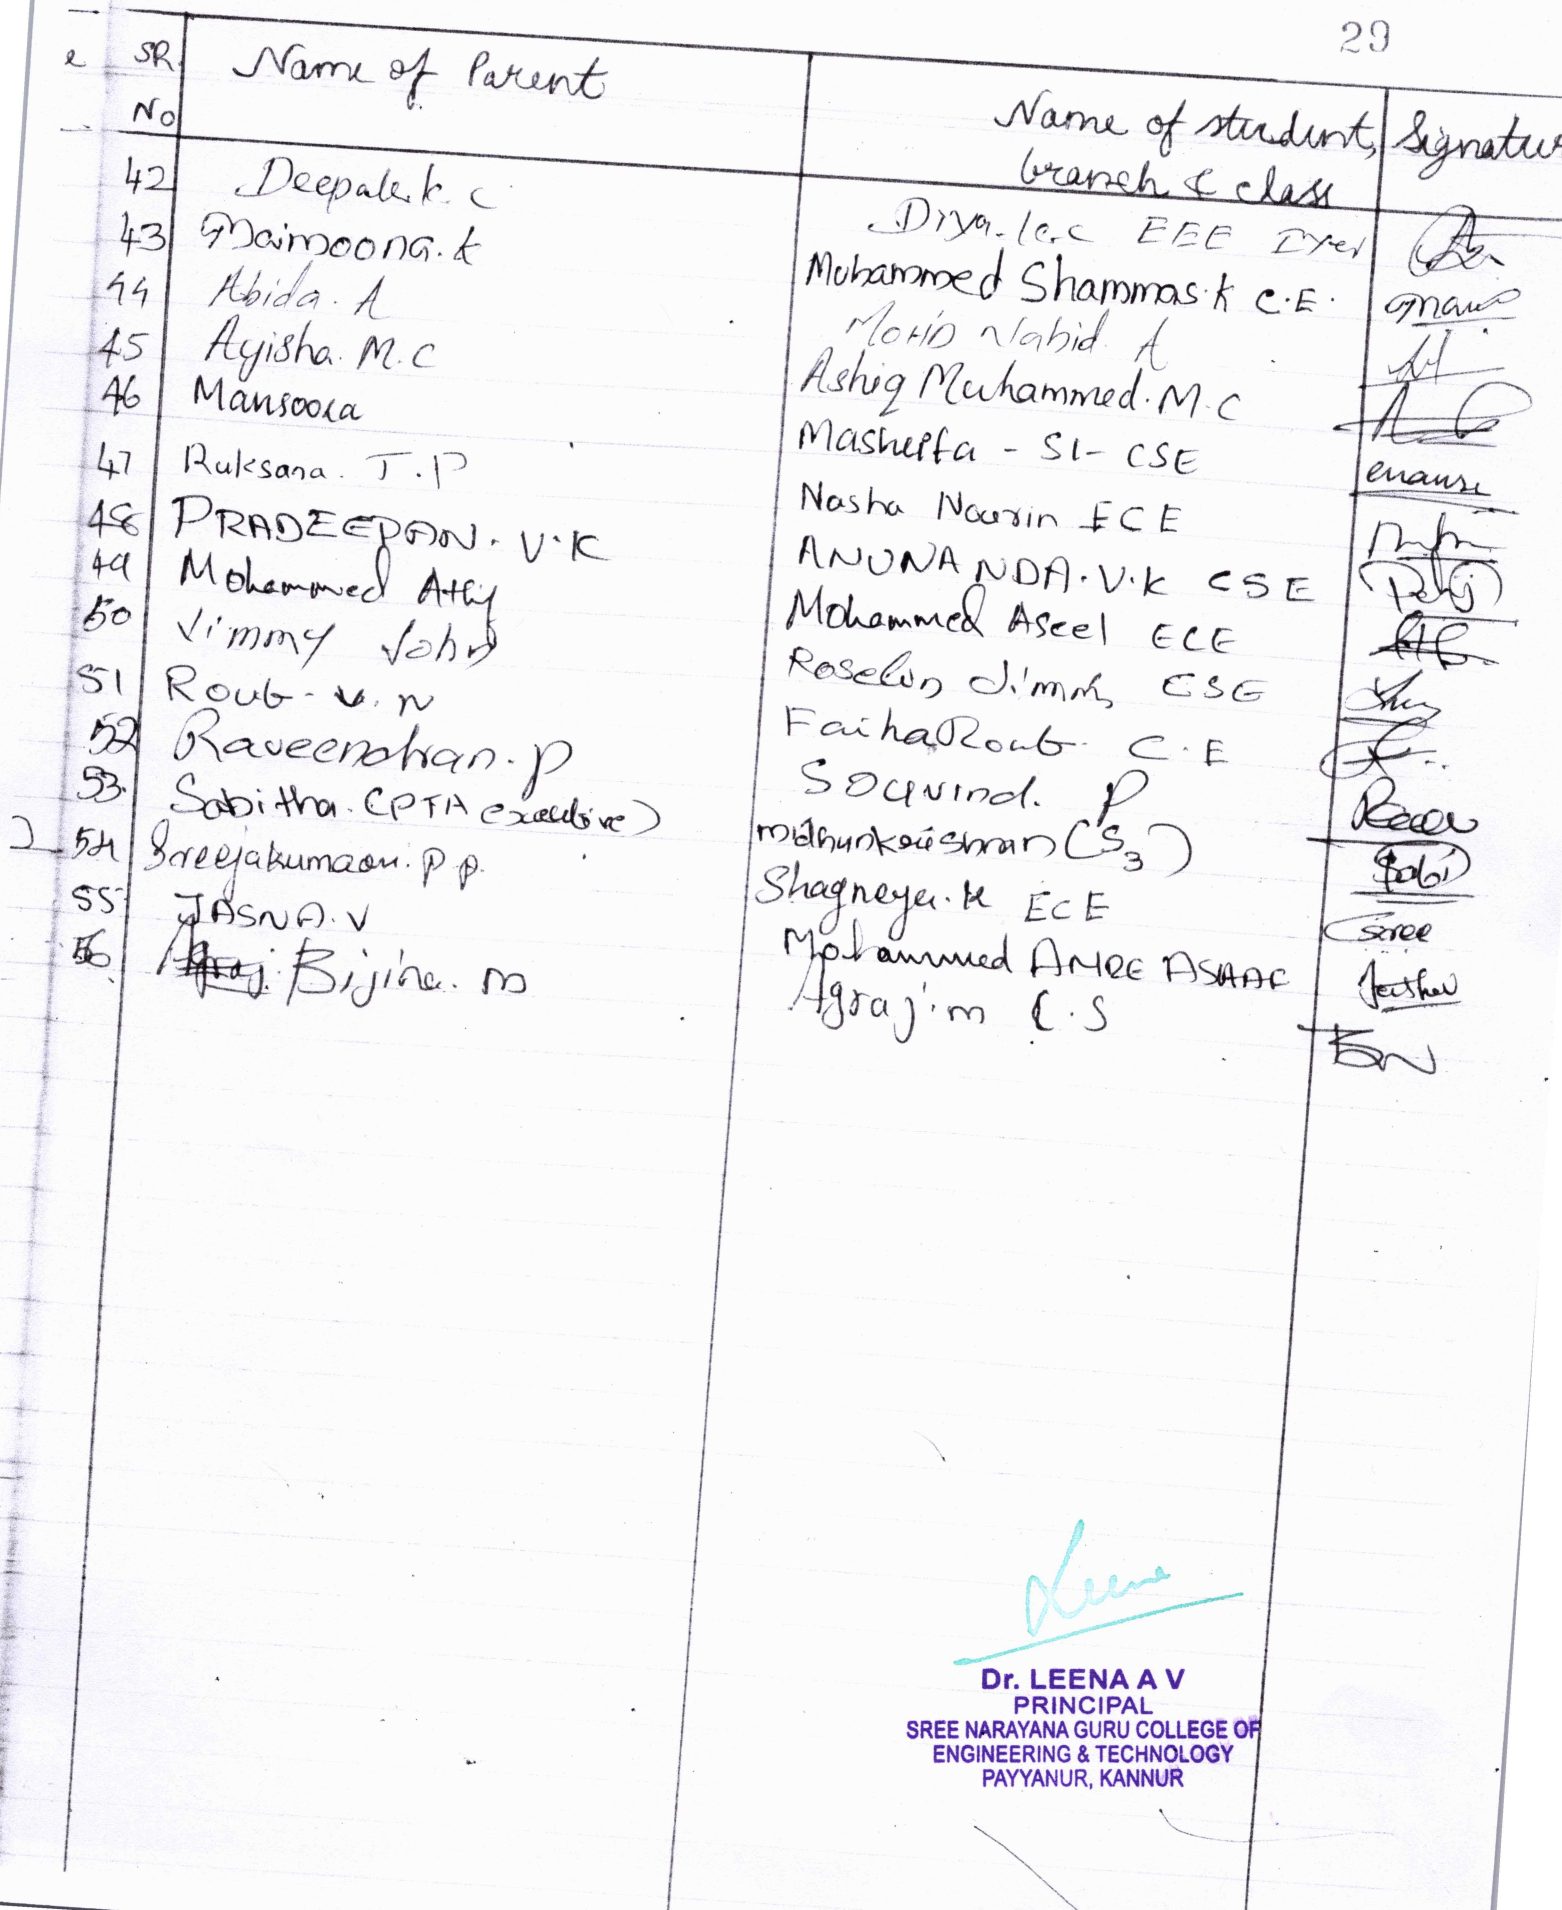 29
SR No Name of Parent Name of student, branch & class Signature
42 Deepak.k.c Diya.k.c EEE Iyer
43 Maimoona.k Muhammed Shammas.k C.E.
44 Abida.A Mohd Nabid A
45 Ayisha.M.C Ashiq Muhammed.M.C
46 Mansoora Masheefa - S1- CSE
47 Ruksana.T.P Nasha Nourin ECE
48 PRADEEPAN.V.K ANUNANDA.V.K CSE
49 Mohammed Mohammed Aseel ECE
50 Jimmy John Roselin Jimmy CSE
51 Roub-v.N Faiha Roub C.E
52 Raveendran.p P
53 Sabitha.(PTA executive) midhunkrishnan (S3) Sabi
54 Sreejakumaari.p p. Shagneya.k ECE Sree
55 JASNA.V Mohammed AMRE ASHAF
56 Bijina.m Agraj.m C.S
Leena
Dr. LEENA A V
PRINCIPAL
SREE NARAYANA GURU COLLEGE OF
ENGINEERING & TECHNOLOGY
PAYYANUR, KANNUR